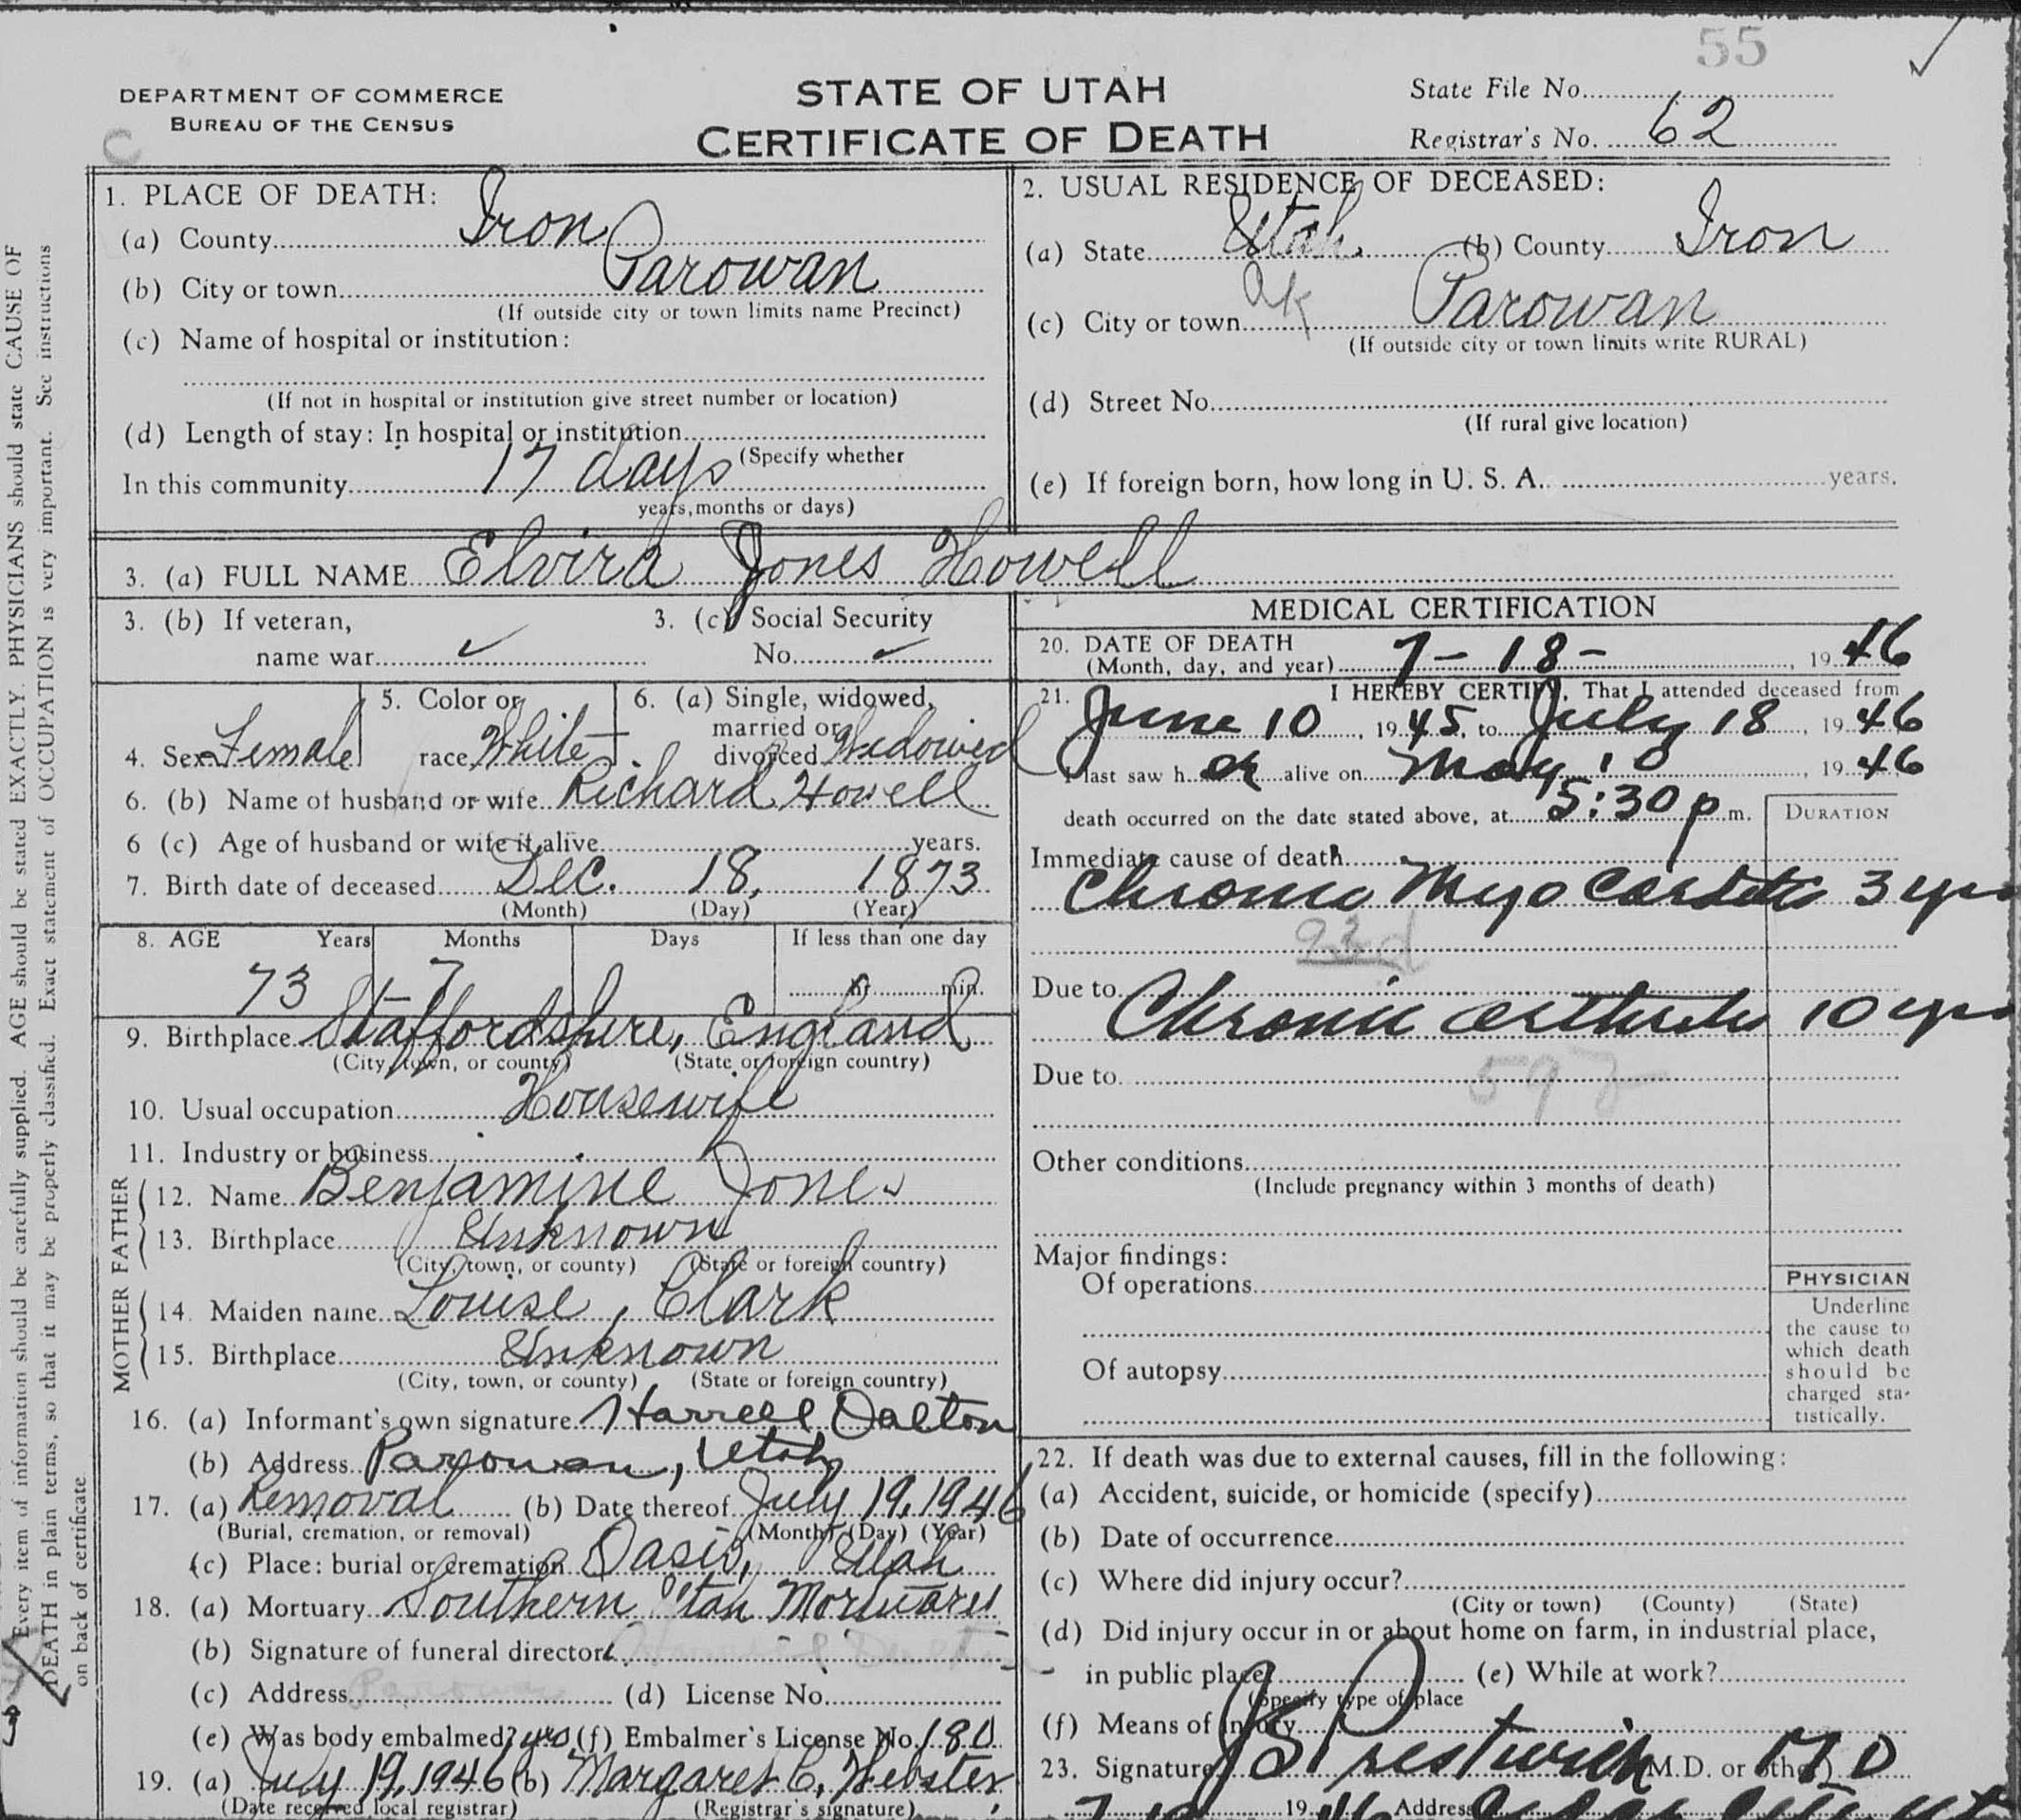 55
DEPARTMENT OF COMMERCE
BUREAU OF THE CENSUS
C
STATE OF UTAH
CERTIFICATE OF DEATH
State File No.
Registrar's No. 62
Every item of information should be carefully supplied. AGE should be stated EXACTLY. PHYSICIANS should state CAUSE OF
DEATH in plain terms, so that it may be properly classified. Exact statement of OCCUPATION is very important. See instructions
on back of certificate
1. PLACE OF DEATH:
(a) County Iron
(b) City or town Parowan
(If outside city or town limits name Precinct)
(c) Name of hospital or institution:
(If not in hospital or institution give street number or location)
(d) Length of stay: In hospital or institution
(Specify whether
In this community 17 days
years, months or days)
2. USUAL RESIDENCE OF DECEASED:
(a) State Utah (b) County Iron
(c) City or town ok Parowan
(If outside city or town limits write RURAL)
(d) Street No.
(If rural give location)
(e) If foreign born, how long in U. S. A. years.
3. (a) FULL NAME Elvira Jones Howell
3. (b) If veteran,
name war ✓
3. (c) Social Security
No. ✓
4. Sex Female
5. Color or
race White
6. (a) Single, widowed,
married or
divorced Widowed
6. (b) Name of husband or wife Richard Howell
6 (c) Age of husband or wife if alive years.
7. Birth date of deceased Dec. 18, 1873
(Month) (Day) (Year)
8. AGE Years Months Days If less than one day
73 7 hr. min.
9. Birthplace Staffordshire, England
(City, town, or county) (State or foreign country)
10. Usual occupation Housewife
11. Industry or business
FATHER
12. Name Benjamine Jones
13. Birthplace Unknown
(City, town, or county) (State or foreign country)
MOTHER
14. Maiden name Louise Clark
15. Birthplace Unknown
(City, town, or county) (State or foreign country)
16. (a) Informant's own signature Harrell Dalton
(b) Address Parowan, Utah
17. (a) Removal (b) Date thereof July 19, 1946
(Burial, cremation, or removal) (Month) (Day) (Year)
(c) Place: burial or cremation Oasis, Utah
18. (a) Mortuary Southern Utah Mortuary
(b) Signature of funeral director
(c) Address Parowan (d) License No.
(e) Was body embalmed? yes (f) Embalmer's License No. 180
19. (a) July 19, 1946 (b) Margaret C. Webster
(Date received local registrar) (Registrar's signature)
MEDICAL CERTIFICATION
20. DATE OF DEATH
(Month, day, and year) 7-18-, 1946
21. I HEREBY CERTIFY, That I attended deceased from
June 10, 1945, to July 18, 1946
I last saw h er alive on May 10, 1946
death occurred on the date stated above, at 5:30 p m.
DURATION
Immediate cause of death
Chronic Myo Carditis 3 yrs
93d
Due to
Chronic Arthritis 10 yrs
Due to 59
Other conditions
(Include pregnancy within 3 months of death)
Major findings:
Of operations
Of autopsy
PHYSICIAN
Underline
the cause to
which death
should be
charged sta-
tistically.
22. If death was due to external causes, fill in the following:
(a) Accident, suicide, or homicide (specify)
(b) Date of occurrence
(c) Where did injury occur?
(City or town) (County) (State)
(d) Did injury occur in or about home on farm, in industrial place,
in public place? (e) While at work?
(Specify type of place
(f) Means of injury
23. Signature J S Prestwich (M.D. or other) M D
1946 Address